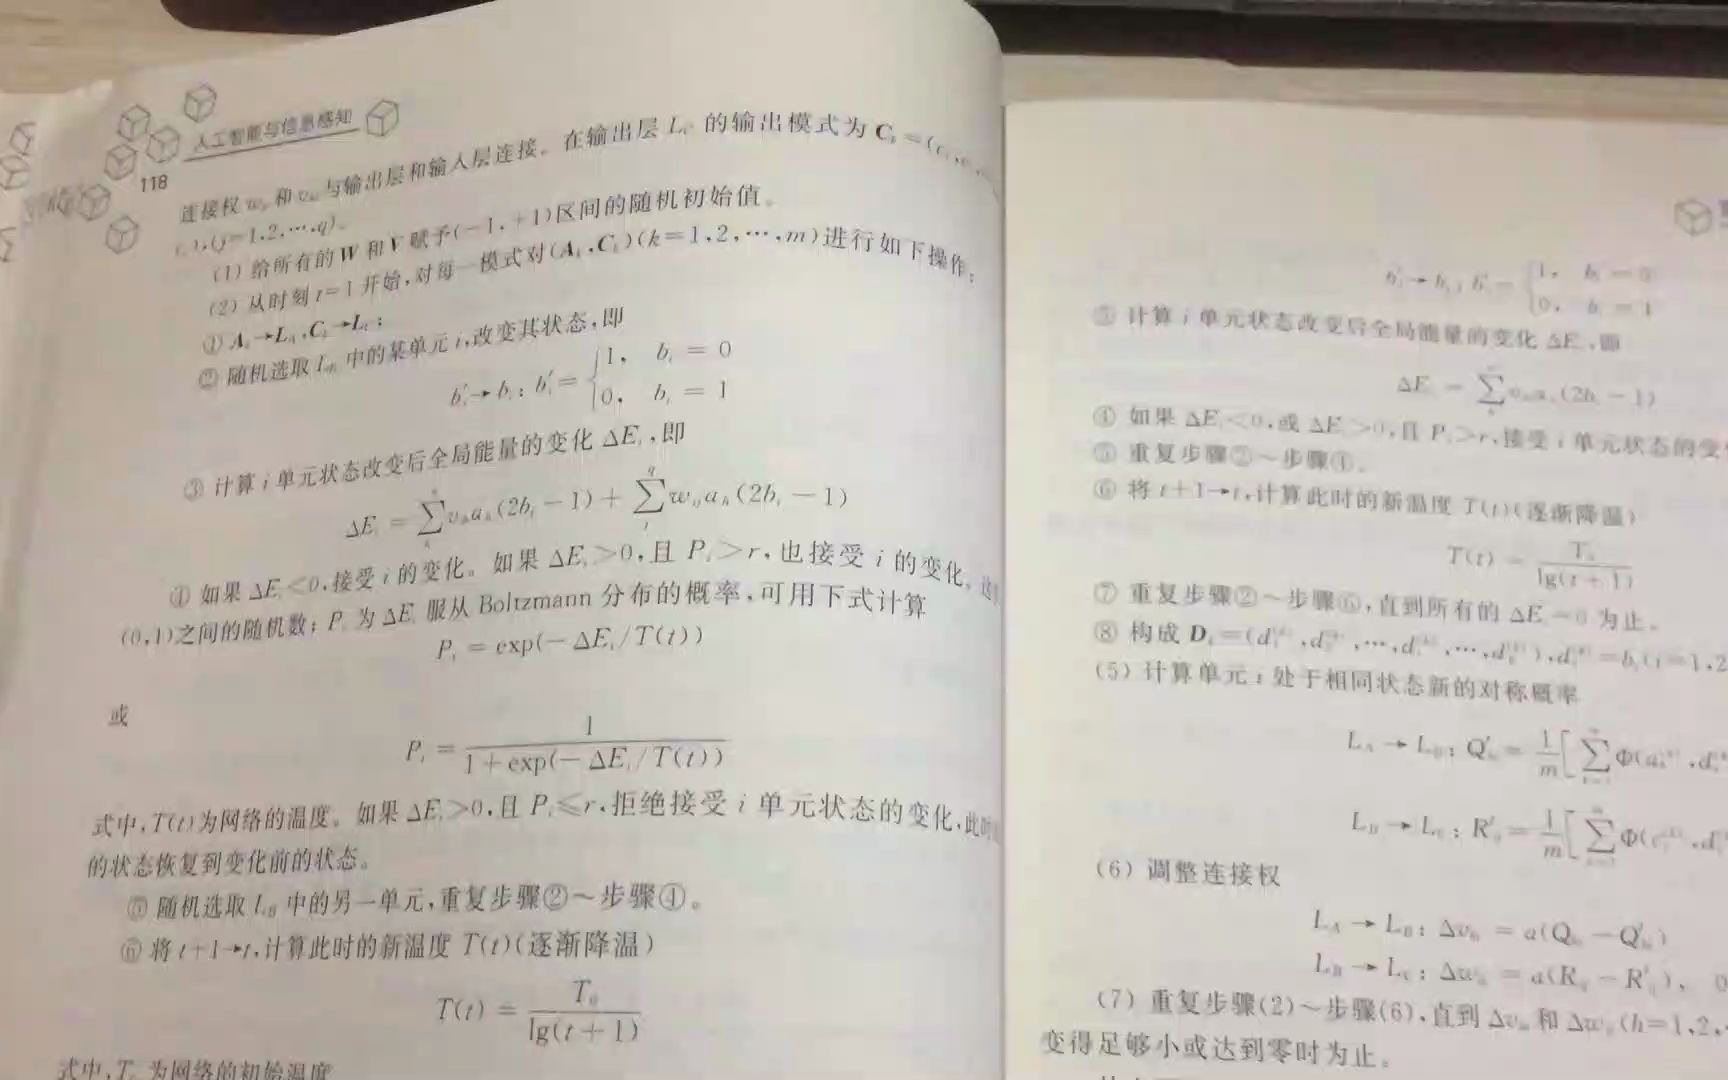 人工智能与信息感知
118
连接权 和 与输出层和输入层连接。在输出层 的输出模式为
(j=1,2,…,q)。
(1) 给所有的W和V赋予(-1,+1)区间的随机初始值。
(2) 从时刻t=1开始,对每一模式对(Aₖ,Cₖ)(k=1,2,…,m)进行如下操作:
① Aₖ→L_A,Cₖ→L_C;
② 随机选取L_B中的某单元i,改变其状态,即
b′ᵢ→bᵢ; b′ᵢ = { 1, bᵢ = 0
0, bᵢ = 1
③ 计算i单元状态改变后全局能量的变化 ΔEᵢ,即
ΔEᵢ = ∑ aₕ(2bᵢ - 1) + ∑ aₕ(2bᵢ - 1)
④ 如果 ΔEᵢ<0,接受i的变化。如果 ΔEᵢ>0,且 Pᵢ>r,也接受 i 的变化,
(0,1)之间的随机数; Pᵢ为ΔEᵢ服从 Boltzmann 分布的概率,可用下式计算
Pᵢ = exp(-ΔEᵢ/T(t))
或
Pᵢ = 1
1+exp(-ΔEᵢ/T(t))
式中,T(t)为网络的温度。如果 ΔEᵢ>0,且 Pᵢ≤r,拒绝接受 i 单元状态的变化,此时
的状态恢复到变化前的状态。
⑤ 随机选取L_B中的另一单元,重复步骤②~步骤④。
⑥ 将t+1→t,计算此时的新温度 T(t)(逐渐降温)
T(t) = T₀
lg(t+1)
式中,T₀为网络的初始温度
b′ᵢ→bᵢ; b′ᵢ = { 1, bᵢ = 0
0, bᵢ = 1
③ 计算i单元状态改变后全局能量的变化 ΔEᵢ,即
ΔEᵢ = ∑ (2bᵢ - 1)
④ 如果 ΔEᵢ<0,或 ΔEᵢ>0,且 Pᵢ>r,接受i单元状态的变
⑤ 重复步骤②~步骤④。
⑥ 将t+1→t,计算此时的新温度 T(t)(逐渐降温)
T(t) = T₀
lg(t+1)
⑦ 重复步骤②~步骤⑥,直到所有的 ΔEᵢ 为止。
⑧ 构成
(5) 计算单元i处于相同状态新的对称概率
L_A → L_B: Q′ = 1/m [ ∑ Φ(
L_B → L_C: R′ = 1/m [ ∑ Φ(
(6) 调整连接权
L_A → L_B: Δv = a(Q - Q′)
L_B → L_C: Δw = a(R - R′),
(7) 重复步骤(2)~步骤(6),直到 Δv 和 Δw (h=1,2,
变得足够小或达到零时为止。